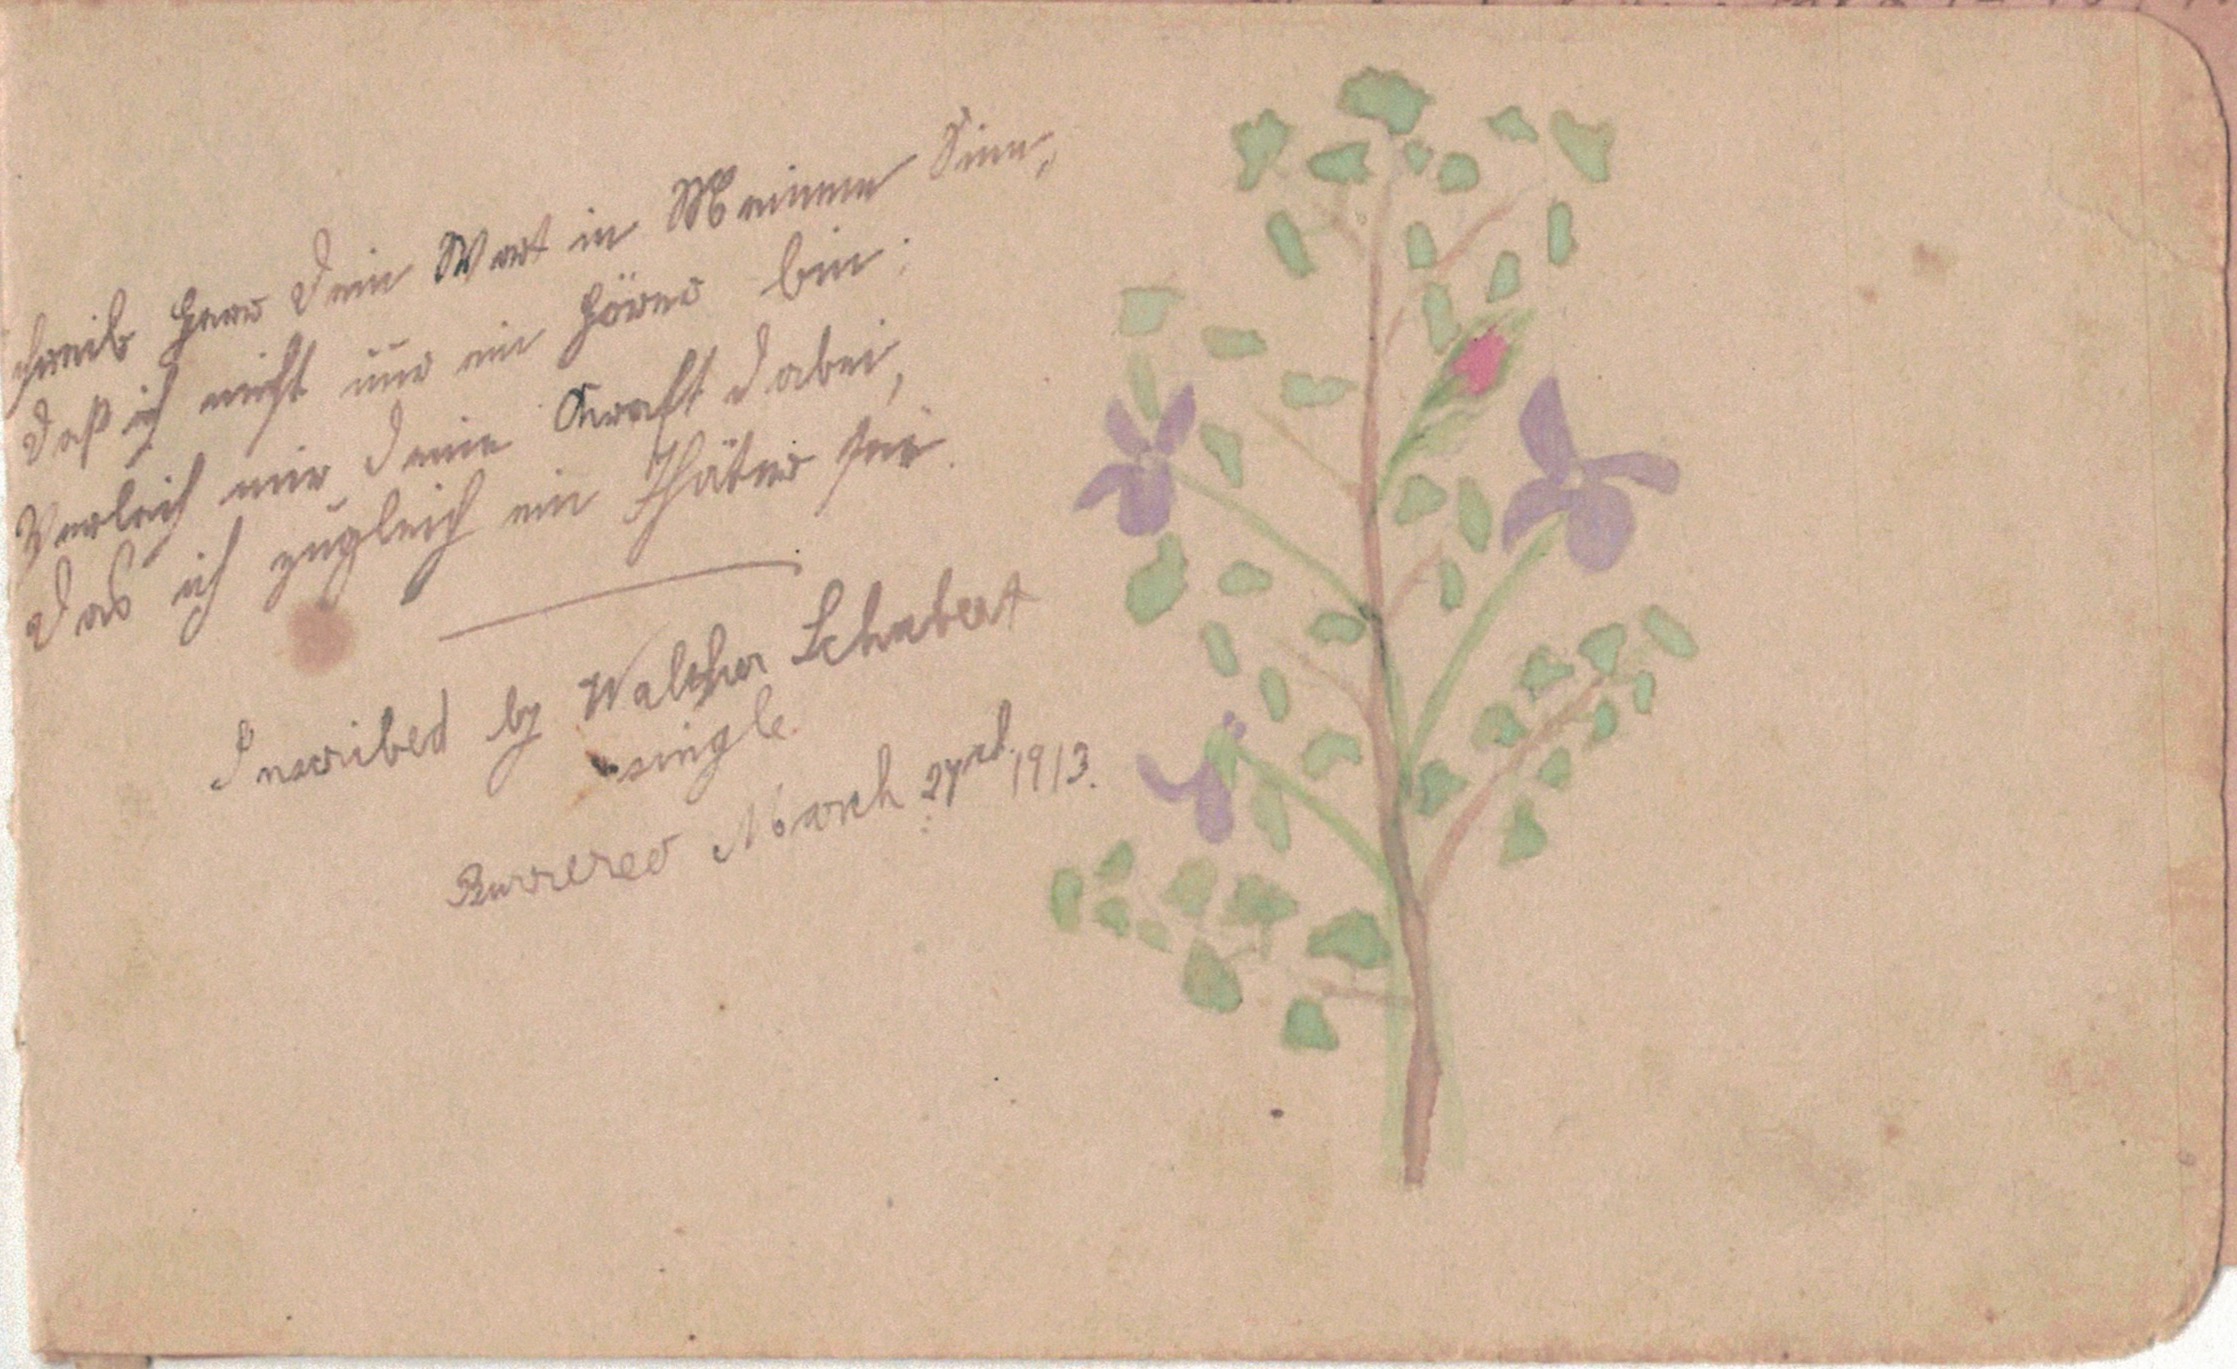 chreib Herr Dein Wort in Meinem Sinn,
Daß ich nicht nur ein Hörer bin;
Verleih mir Deine Kraft dabei,
Das ich zugleich ein Thäter sei.
Inscribed by Walther Schubert
single.
March 27rd. 1913.